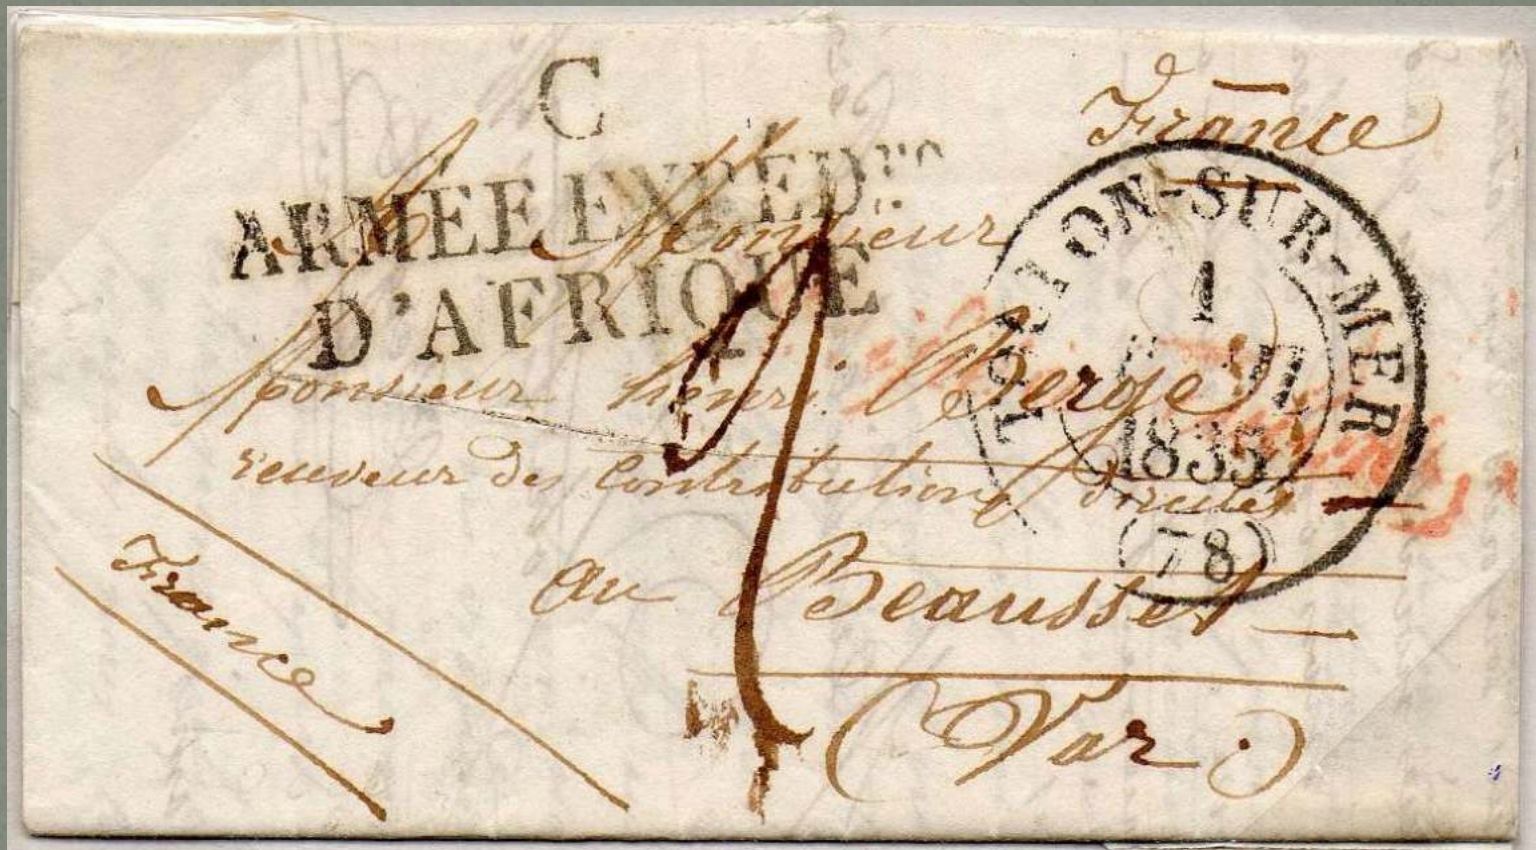 C
ARMÉE EXPÉD.RE
D'AFRIQUE
France
TOULON-SUR-MER
1
1835
(78)
A Monsieur
Monsieur henri Berge
receveur des Contributions directes
au Beausset
(Var)
France